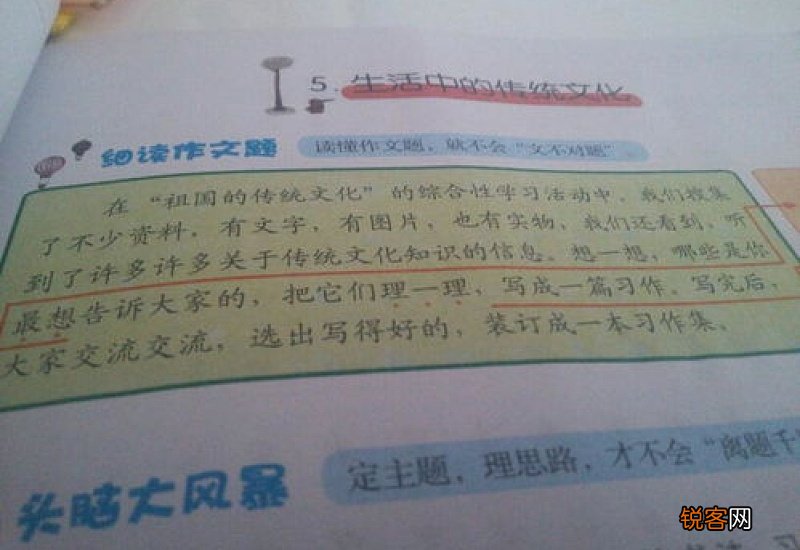 5. 生活中的传统文化
细读作文题 读懂作文题，就不会“文不对题”。
在“祖国的传统文化”的综合性学习活动中，我们收集
了不少资料，有文字，有图片，也有实物，我们还看到、听
到了许多许多关于传统文化知识的信息。想一想，哪些是你
最想告诉大家的，把它们理一理，写成一篇习作。写完后，
大家交流交流，选出写得好的，装订成一本习作集。
头脑大风暴 定主题，理思路，才不会“离题千
锐客网